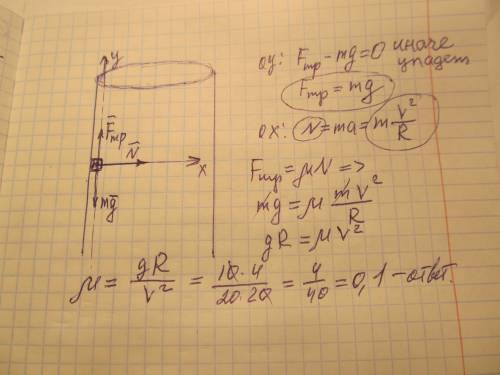 y
F̄тр
N̄
x
mḡ
оy: Fтр - mg = 0 иначе
упадет
Fтр = mg
ox: N = ma = m V²/R
Fтр = μN =>
mg = μ mV²/R
gR = μV²
μ = gR/V² = 10·4/20·20 = 4/40 = 0,1 - ответ.